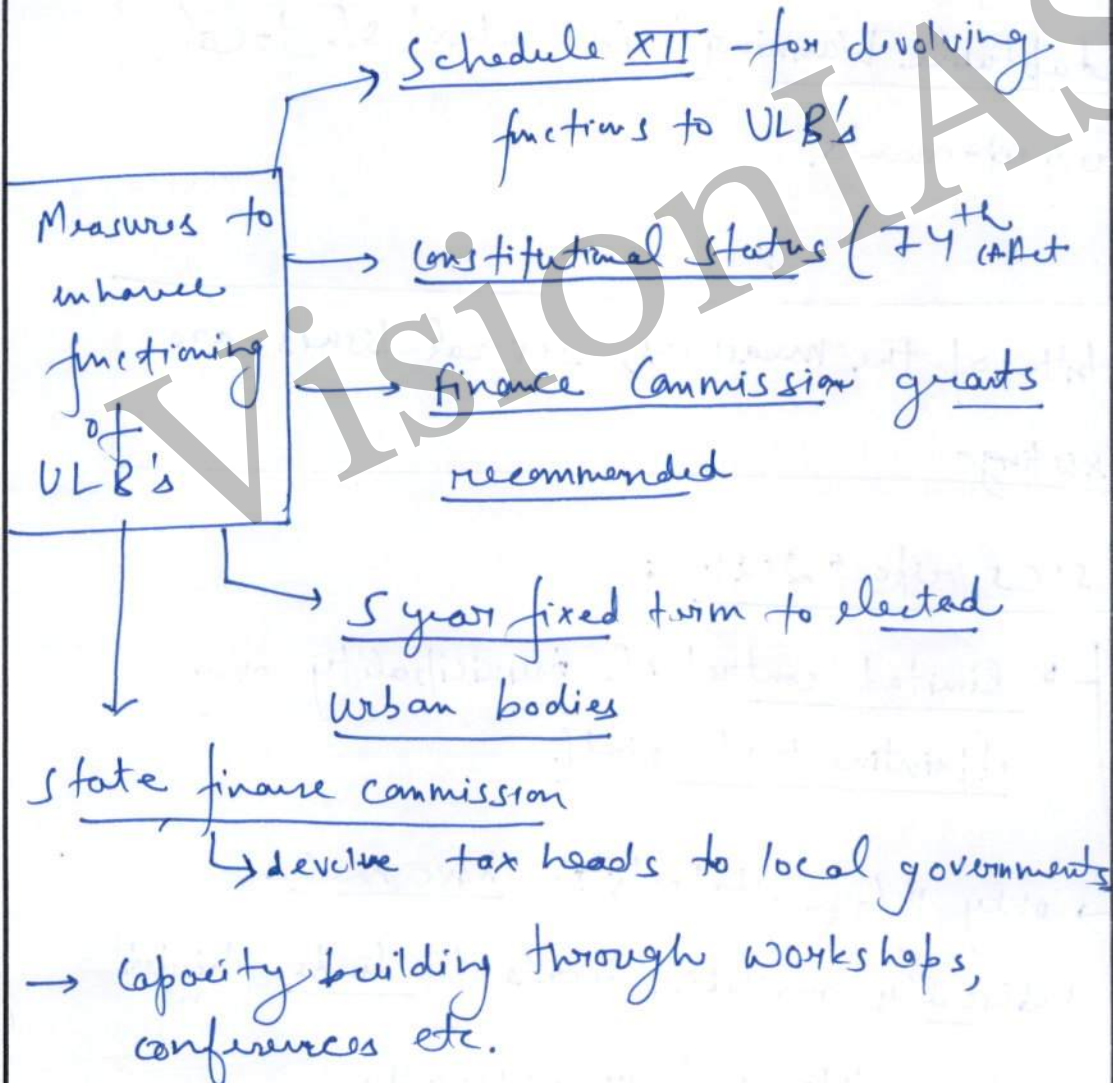 Schedule XII - for devolving
functions to ULB's
Measures to
enhance
functioning
of
ULB's
Constitutional status (74th CAAct
finance Commission grants
recommended
5 year fixed term to elected
urban bodies
State finance commission
↳ devolve tax heads to local governments
→ Capacity building through workshops,
conferences etc.
VisionIAS